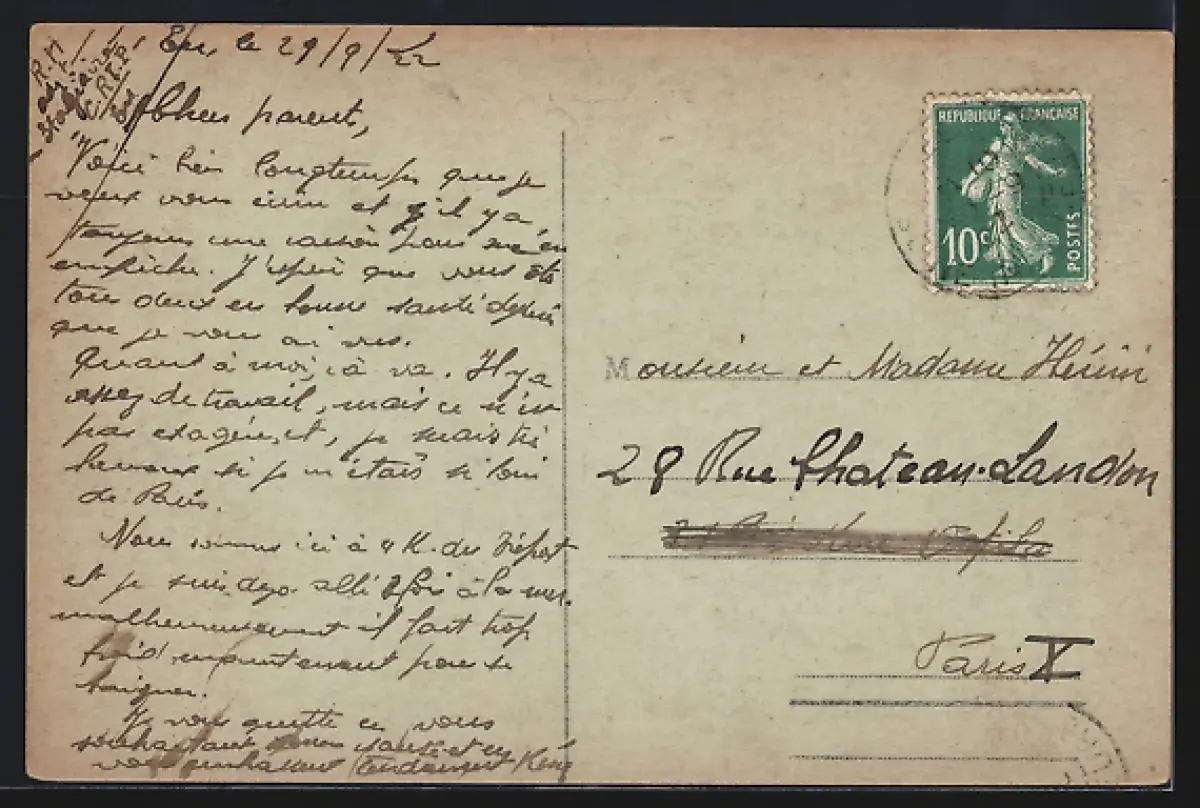 Eu, le 29/9/22
Chers parents,
Voici bien longtemps que je
veux vous écrire et qu'il y a
toujours une raison pour m'en
empêcher. J'espère que vous êtes
tous deux en bonne santé depuis
que je vous ai vus.
Quant à moi, çà va. Il y a
assez de travail, mais ce n'est
pas exagéré, et, je serais très
heureux si je n'étais si loin
de Paris.
Nous sommes ici à 4 K. du Tréport
et je suis deja allé 2 fois à la mer.
malheureusement il fait trop
froid maintenant pour se
baigner.
Je vous quitte en vous
souhaitant bonne santé et en
vous embrassant tendrement
REPUBLIQUE FRANÇAISE
10c
POSTES
Monsieur et Madame
28 Rue Chateau-Landon
Paris X